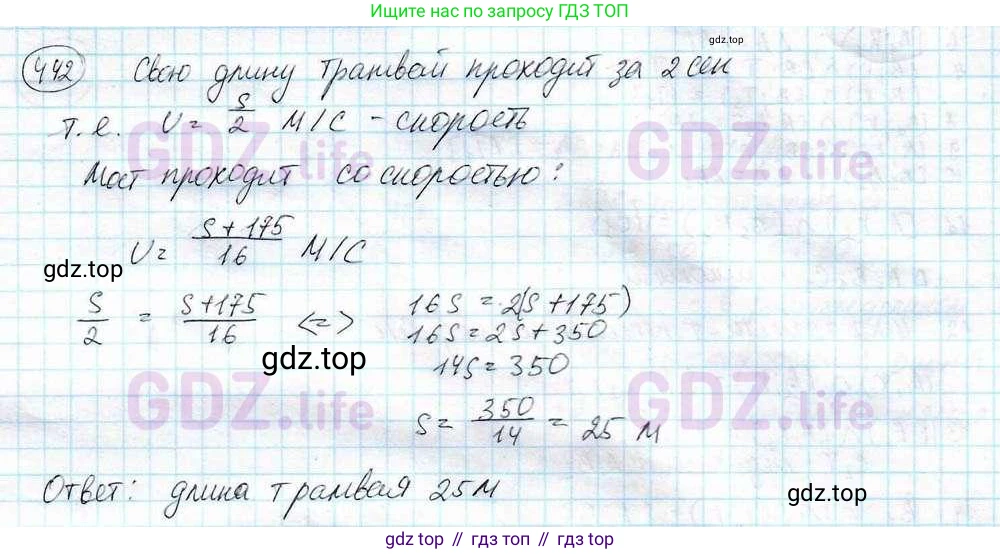 Ищите ещё по запросу ГДЗ ТОП
gdz.top
442 Свою длину трамвай проходит за 2 сек
т. е. V = S/2 м/с - скорость
GDZ.life GDZ.life
Мост проходит со скоростью:
V = S+175/16 м/с
gdz.top
S/2 = S+175/16 <=> 16S = 2(S+175)
16S = 2S+350
gdz.top
14S = 350
GDZ.life GDZ.life
S = 350/14 = 25 м
Ответ: длина трамвая 25м
gdz.top
gdz.top // гдз топ // gdz.top